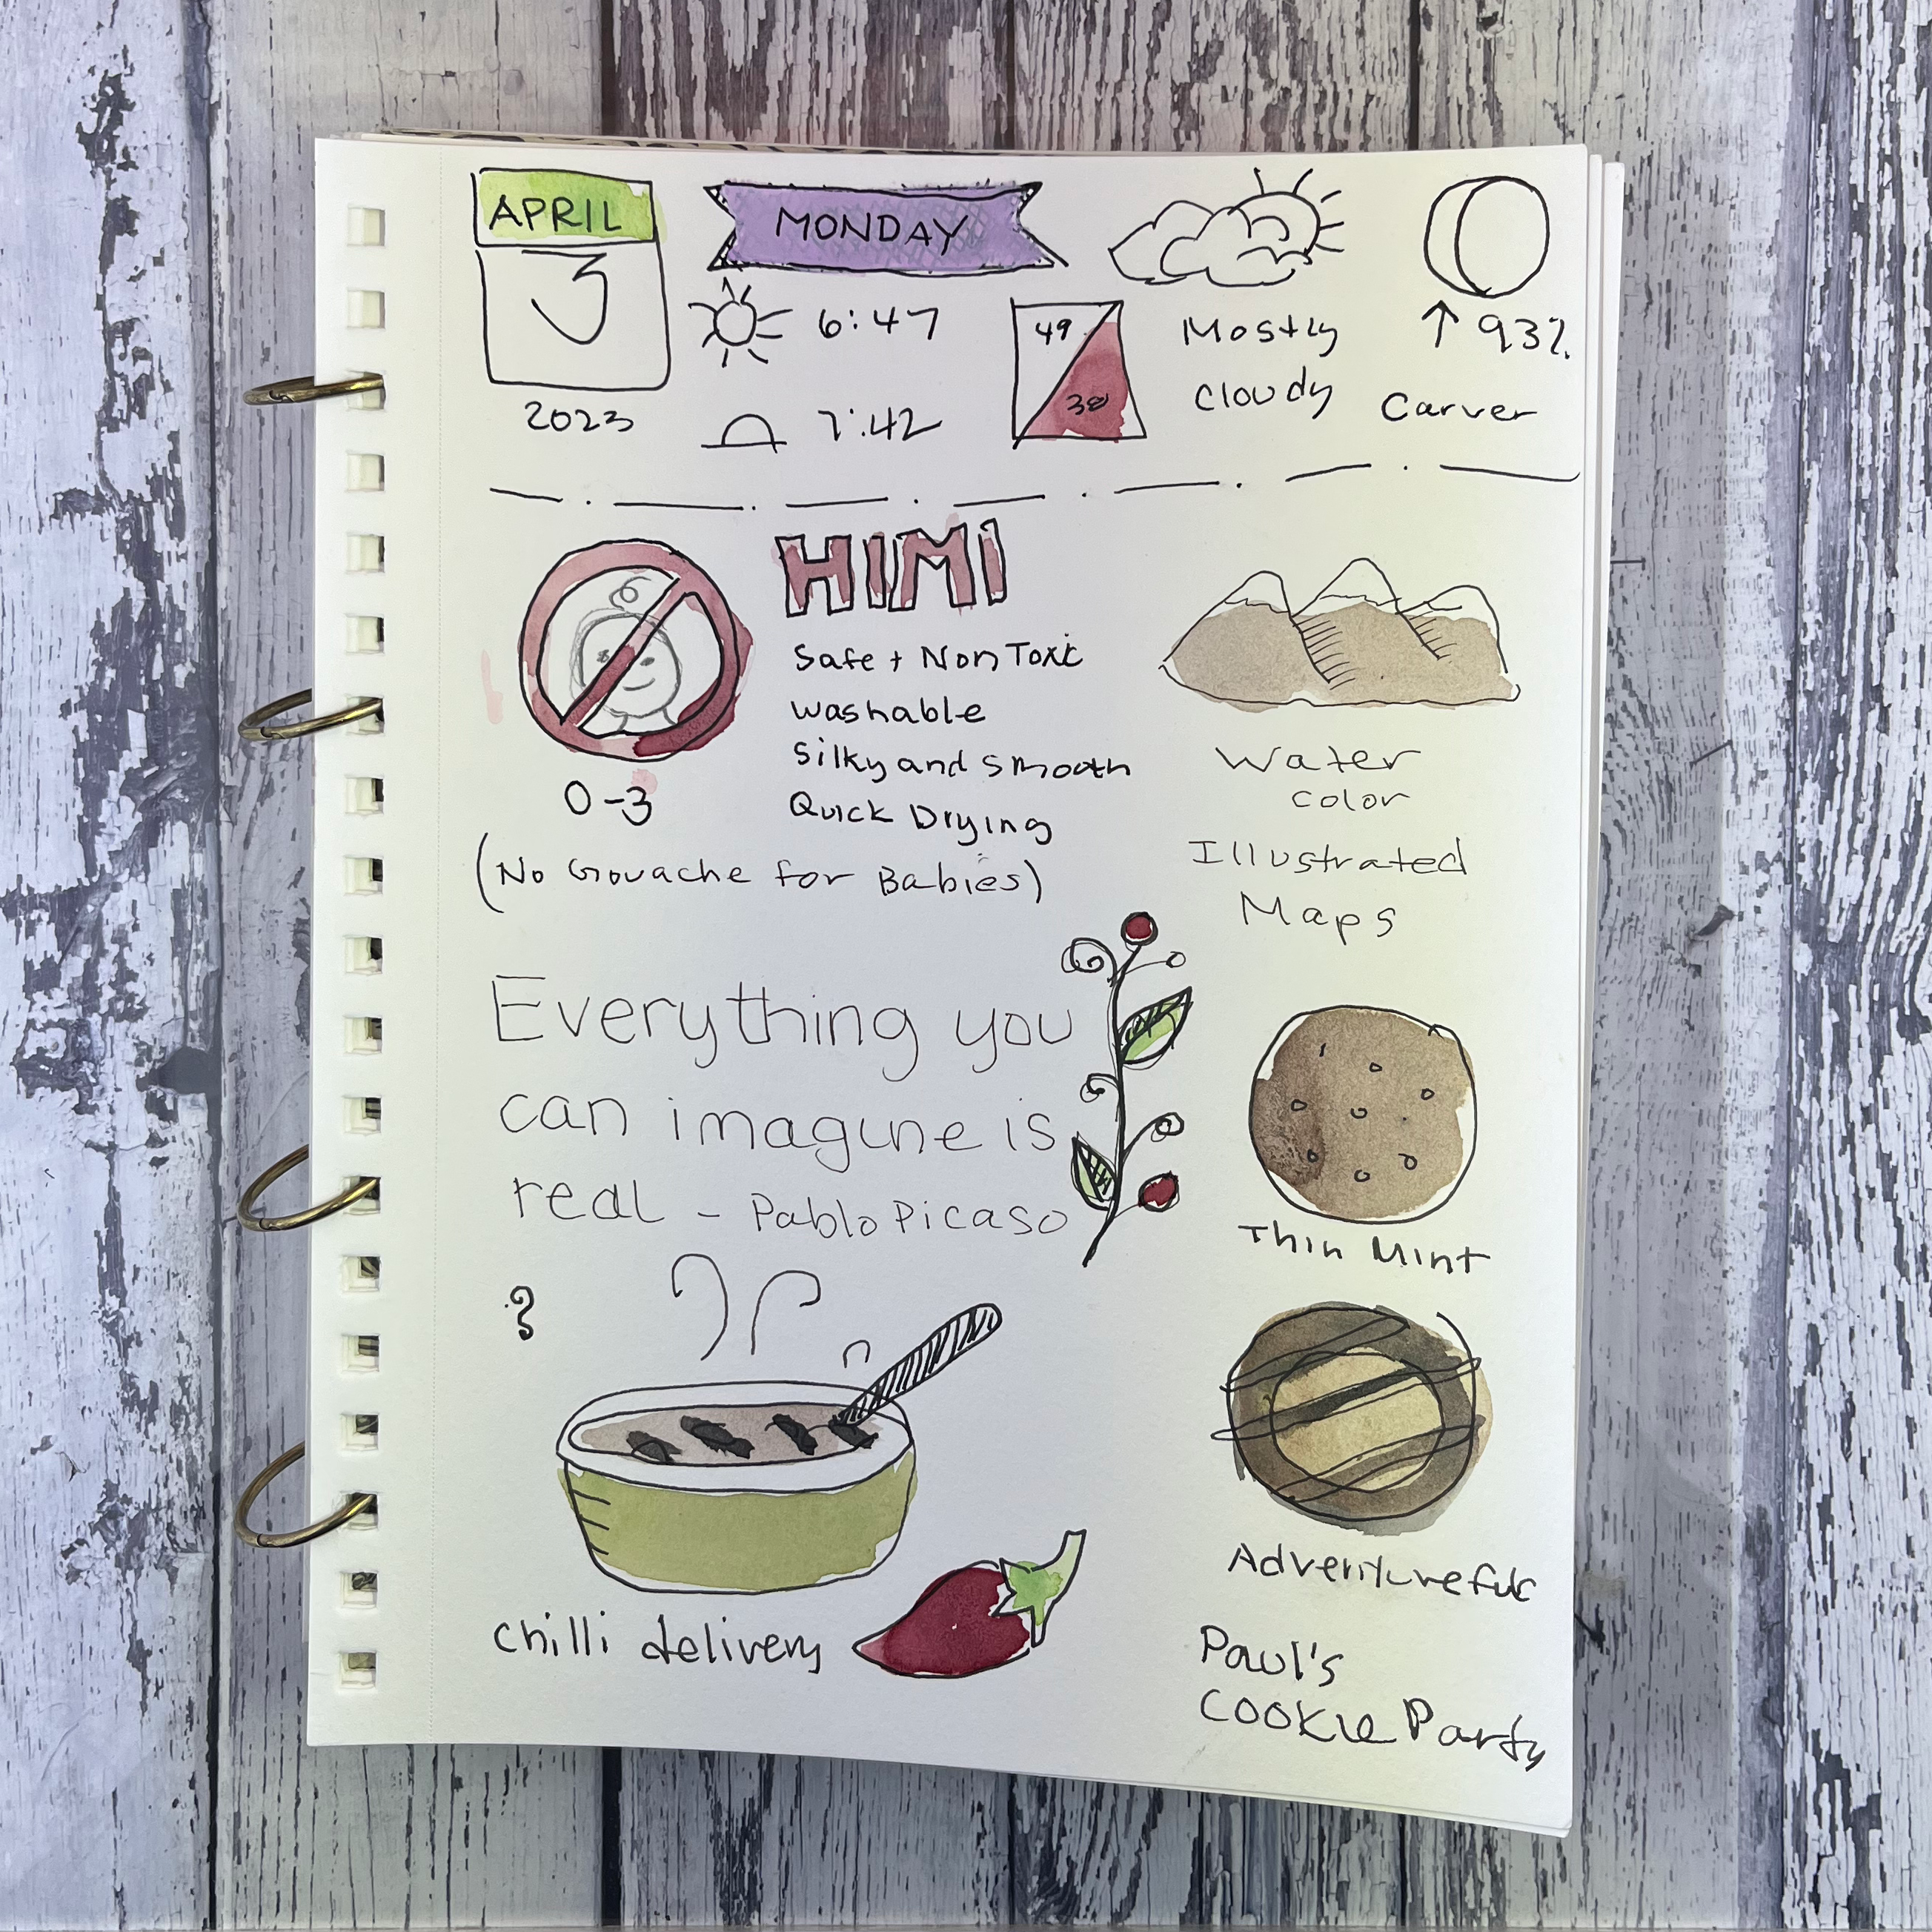 APRIL
3
2023
MONDAY
6:47
7:42
49
38
Mostly
Cloudy
↑ 93%
Carver
HIMI
Safe + Non Toxic
Washable
Silky and smooth
Quick Drying
0-3
(No Gouache for Babies)
Water
color
Illustrated
Maps
Everything you
can imagine is
real - Pablo Picaso
Thin Mint
?
Chilli delivery
Adventureful
Paul's
Cookie Party